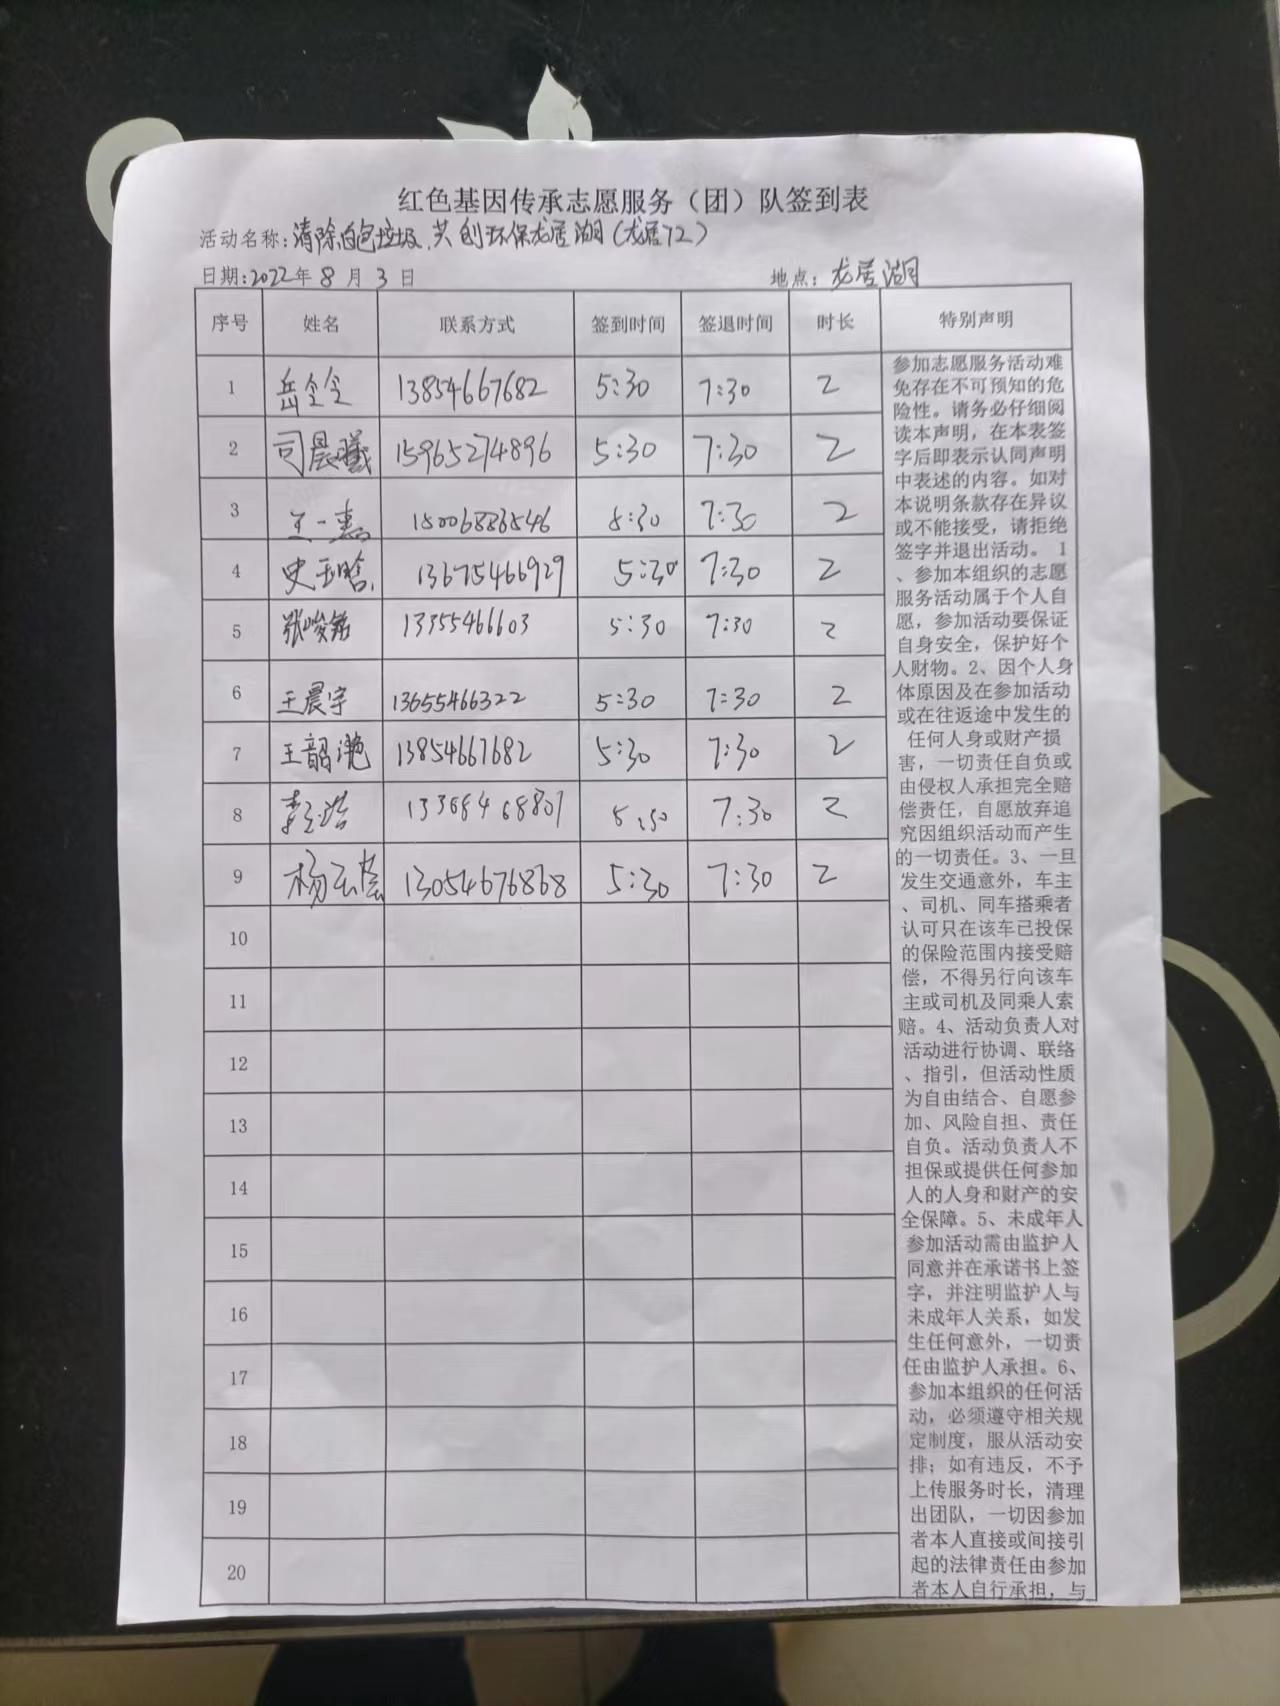 红色基因传承志愿服务（团）队签到表
活动名称:清除白色垃圾,共创环保龙居湖(龙居72)
日期:2022年 8 月 3 日 地点: 龙居湖
序号 姓名 联系方式 签到时间 签退时间 时长 特别声明
1 岳令令 13854667682 5:30 7:30 2
2 司晨曦 15965274896 5:30 7:30 2
3 王一惠 15006886546 5:30 7:30 2
4 史玉晗 13675466929 5:30 7:30 2
5 张峻铭 13355466603 5:30 7:30 2
6 王晨宇 13655466322 5:30 7:30 2
7 王韶滟 13854667682 5:30 7:30 2
8 7:30 2
9 杨云 13054676868 5:30 7:30 2
10
11
12
13
14
15
16
17
18
19
20
参加志愿服务活动难
免存在不可预知的危
险性。请务必仔细阅
读本声明，在本表签
字后即表示认同声明
中表述的内容。如对
本说明条款存在异议
或不能接受，请拒绝
签字并退出活动。 1
、参加本组织的志愿
服务活动属于个人自
愿，参加活动要保证
自身安全，保护好个
人财物。2、因个人身
体原因及在参加活动
或在往返途中发生的
任何人身或财产损
害，一切责任自负或
由侵权人承担完全赔
偿责任，自愿放弃追
究因组织活动而产生
的一切责任。3、一旦
发生交通意外，车主
、司机、同车搭乘者
认可只在该车已投保
的保险范围内接受赔
偿，不得另行向该车
主或司机及同乘人索
赔。4、活动负责人对
活动进行协调、联络
、指引，但活动性质
为自由结合、自愿参
加、风险自担、责任
自负。活动负责人不
担保或提供任何参加
人的人身和财产的安
全保障。5、未成年人
参加活动需由监护人
同意并在承诺书上签
字，并注明监护人与
未成年人关系，如发
生任何意外，一切责
任由监护人承担。6、
参加本组织的任何活
动，必须遵守相关规
定制度，服从活动安
排；如有违反，不予
上传服务时长，清理
出团队，一切因参加
者本人直接或间接引
起的法律责任由参加
者本人自行承担，与